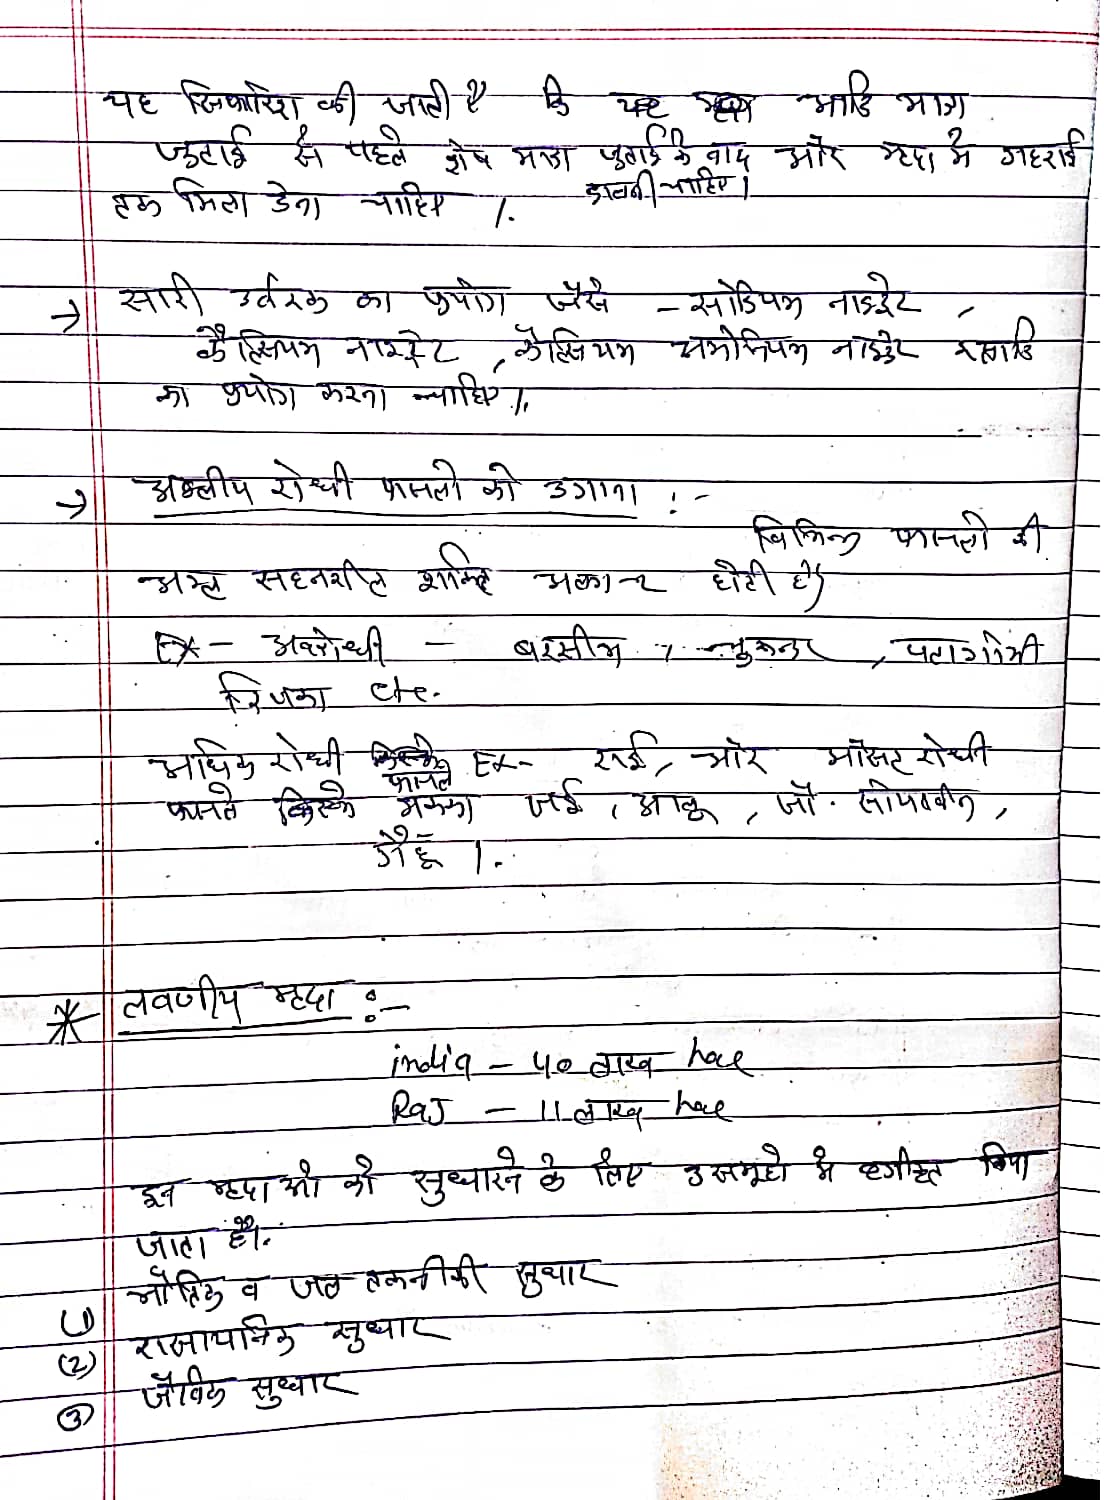 यह सिफारिश की जाती है कि यह आदि भाग
जुताई से पहले शेष मात्रा जुताई के बाद और मृदा मे गहराई
डालनी चाहिए।
तक मिला देना चाहिए ।.
→ सारी उर्वरक का प्रयोग जैसे – सोडियम नाइट्रेट ,
कैल्सियम नाइट्रेट , कैल्सियम अमोनियम नाइट्रेट इत्यादि
का प्रयोग करना चाहिए ।.
→ अम्लीय रोधी फासलो को उगाना :-
विभिन्न फासलो की
अम्ल सहनशील शक्ति होती है
Ex – अवरोधी – बरसीम , चुकन्दर , पत्तागोभी
रिजका etc.
अधिक रोधी फासले Ex- राई, और रोधी
फासले मक्का जई , आलू , जौ. सोयाबीन ,
गेहूँ ।.
* लवणीय मृदा :-
india – 40 लाख hac
Raj – 11 लाख hac
इन मृदाओ को सुधारने के लिए 3 समूहो मे वर्गीकृत किया
जाता है।.
(1) भौतिक व जल तकनीकी सुधार
(2) रासायनिक सुधार
(3) जैविक सुधार